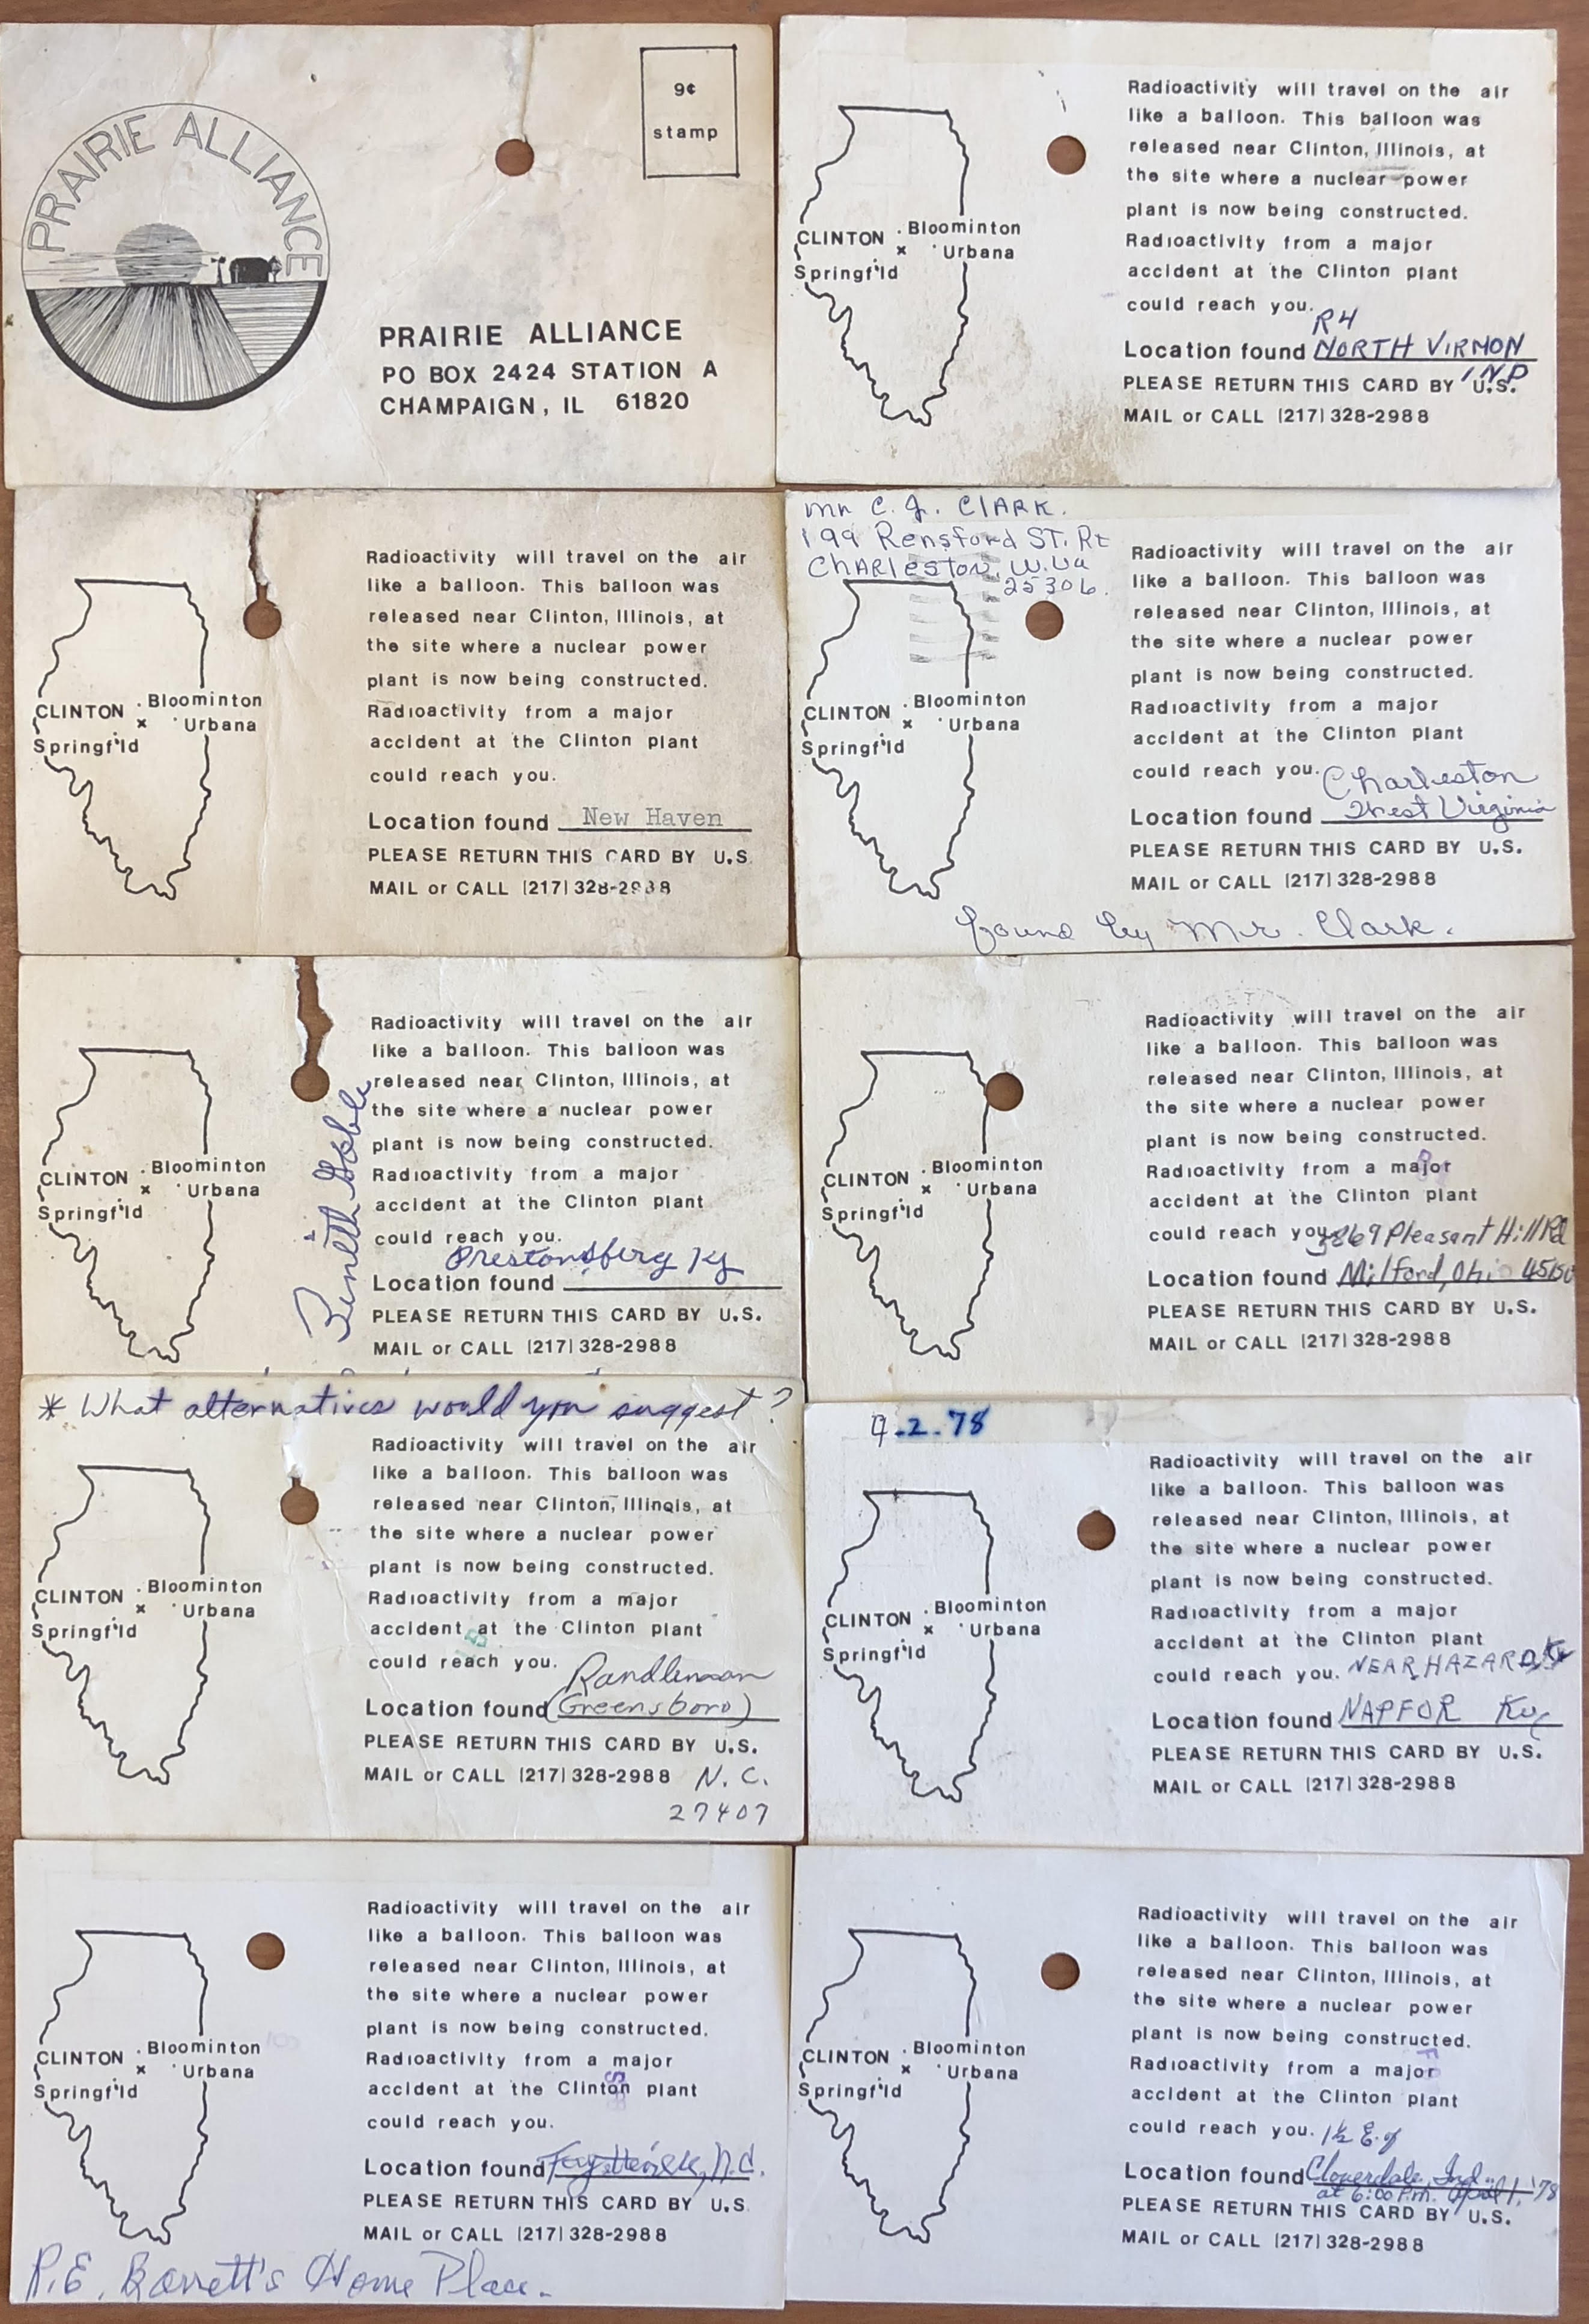 PRAIRIE ALLIANCE
9¢
stamp
PRAIRIE ALLIANCE
PO BOX 2424 STATION A
CHAMPAIGN, IL 61820
Radioactivity will travel on the air
like a balloon. This balloon was
released near Clinton, Illinois, at
the site where a nuclear power
plant is now being constructed.
Radioactivity from a major
accident at the Clinton plant
could reach you.
R4
Location found NORTH VIRMON
IND
PLEASE RETURN THIS CARD BY U.S.
MAIL or CALL (217) 328-2988
. Bloominton
CLINTON x . Urbana
Springf'ld
Radioactivity will travel on the air
like a balloon. This balloon was
released near Clinton, Illinois, at
the site where a nuclear power
plant is now being constructed.
Radioactivity from a major
accident at the Clinton plant
could reach you.
Location found New Haven
PLEASE RETURN THIS CARD BY U.S.
MAIL or CALL (217) 328-2988
. Bloominton
CLINTON x . Urbana
Springf'ld
Mr C. J. CLARK.
199 Rensford ST. Rt
CHARleston, W. Va
25306.
Radioactivity will travel on the air
like a balloon. This balloon was
released near Clinton, Illinois, at
the site where a nuclear power
plant is now being constructed.
Radioactivity from a major
accident at the Clinton plant
could reach you.
Charleston
Location found West Virginia
PLEASE RETURN THIS CARD BY U.S.
MAIL or CALL (217) 328-2988
found by Mr. Clark.
. Bloominton
CLINTON x . Urbana
Springf'ld
Radioactivity will travel on the air
like a balloon. This balloon was
released near Clinton, Illinois, at
the site where a nuclear power
plant is now being constructed.
Radioactivity from a major
accident at the Clinton plant
could reach you.
Prestonsberg Ky
Location found
PLEASE RETURN THIS CARD BY U.S.
MAIL or CALL (217) 328-2988
. Bloominton
CLINTON x . Urbana
Springf'ld
Radioactivity will travel on the air
like a balloon. This balloon was
released near Clinton, Illinois, at
the site where a nuclear power
plant is now being constructed.
Radioactivity from a major
accident at the Clinton plant
could reach you.
5869 Pleasant Hill Rd
Location found Milford, Oh. 45150
PLEASE RETURN THIS CARD BY U.S.
MAIL or CALL (217) 328-2988
. Bloominton
CLINTON x . Urbana
Springf'ld
* What alternatives would you suggest?
Radioactivity will travel on the air
like a balloon. This balloon was
released near Clinton, Illinois, at
the site where a nuclear power
plant is now being constructed.
Radioactivity from a major
accident at the Clinton plant
could reach you.
Randleman
Location found (Greensboro)
PLEASE RETURN THIS CARD BY U.S.
MAIL or CALL (217) 328-2988 N. C.
27407
. Bloominton
CLINTON x . Urbana
Springf'ld
4-2-78
Radioactivity will travel on the air
like a balloon. This balloon was
released near Clinton, Illinois, at
the site where a nuclear power
plant is now being constructed.
Radioactivity from a major
accident at the Clinton plant
could reach you.
NEAR HAZARD Ky
Location found NAPFOR Ky
PLEASE RETURN THIS CARD BY U.S.
MAIL or CALL (217) 328-2988
. Bloominton
CLINTON x . Urbana
Springf'ld
Radioactivity will travel on the air
like a balloon. This balloon was
released near Clinton, Illinois, at
the site where a nuclear power
plant is now being constructed.
Radioactivity from a major
accident at the Clinton plant
could reach you.
Location found Fayetteville, N.C.
PLEASE RETURN THIS CARD BY U.S.
MAIL or CALL (217) 328-2988
R.E. Barrett's Home Place.
. Bloominton
CLINTON x . Urbana
Springf'ld
Radioactivity will travel on the air
like a balloon. This balloon was
released near Clinton, Illinois, at
the site where a nuclear power
plant is now being constructed.
Radioactivity from a major
accident at the Clinton plant
could reach you.
1½ E. of
Location found Cloverdale, Ind.
at 6:00 P.m. April 1, '78
PLEASE RETURN THIS CARD BY U.S.
MAIL or CALL (217) 328-2988
. Bloominton
CLINTON x . Urbana
Springf'ld